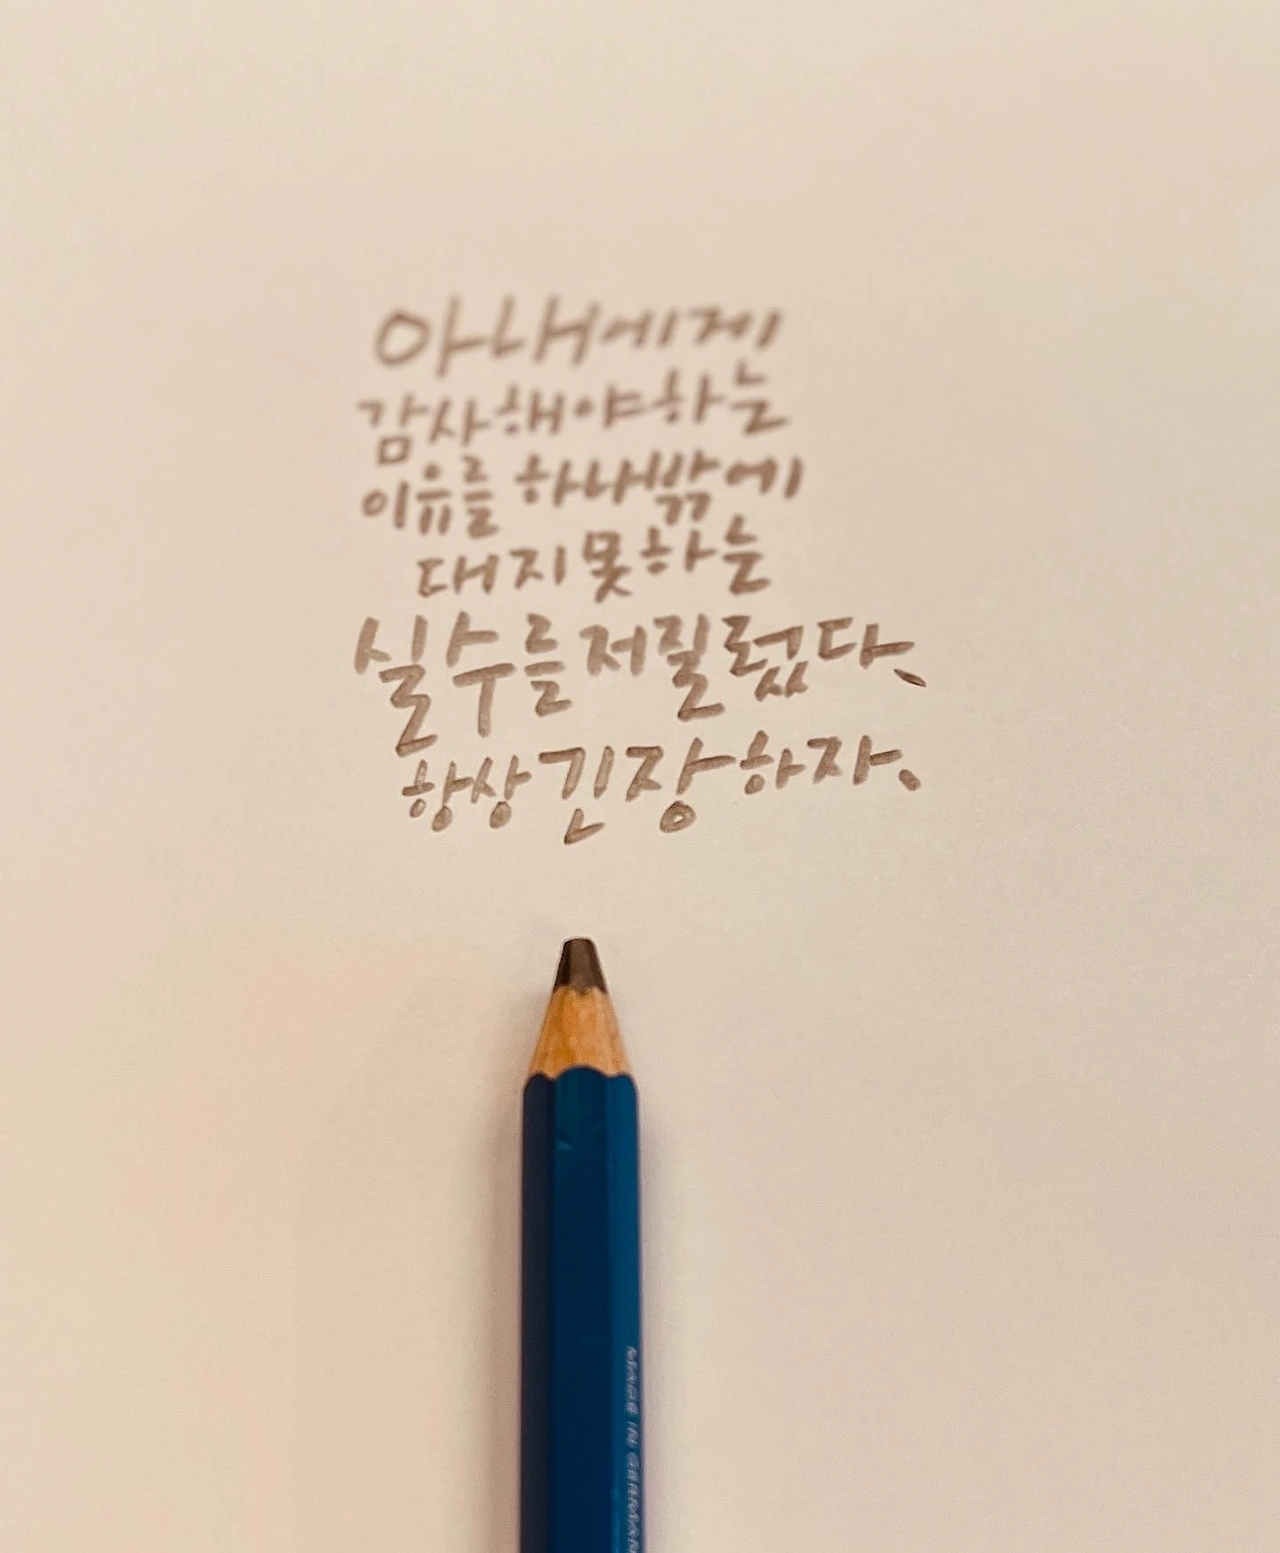 아내에게
감사해야하는
이유를 하나밖에
대지못하는
실수를저질렀다.
항상긴장하자.
MADE IN GERMAN